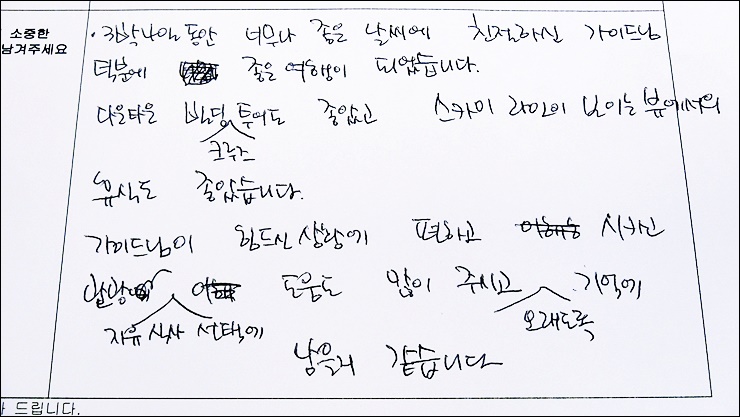 소중한
남겨주세요
· 3박4일 동안 너무나 좋은 날씨에 친절하신 가이드님
덕분에 좋은 여행이 되었습니다.
다운타운 빌딩 투어도 좋았고 스카이 라인이 보이는 뷰에서의
크루즈
휴식도 좋았습니다.
가이드님이 힘드신 상황에 편하고 시키신
자유 식사 선택에 도움도 많이 주시고 기억에
오래도록
남을거 같습니다
드립니다.